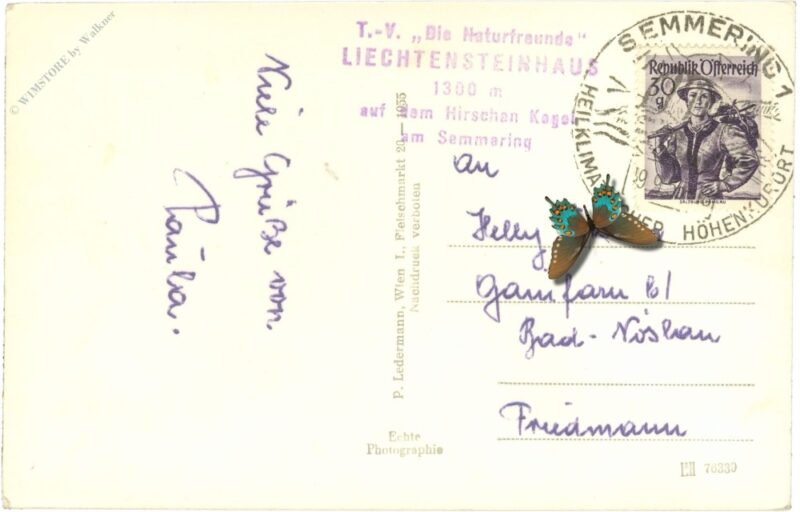 © WIMSTORE by Walkner
Viele Grüße von
Paula.
T.-V. „Die Naturfreunde“
LIECHTENSTEINHAUS
1300 m
auf dem Hirschen Kogel
am Semmering
SEMMERING 1
HEILKLIMATISCHER HÖHENKURORT
Republik Österreich
30
g
P. Ledermann, Wien I., Fleischmarkt 20 — 1955
Nachdruck verboten
An
Helly
Gainfarn b/
Bad-Vöslau
Friedmann
Echte
Photographie
76330